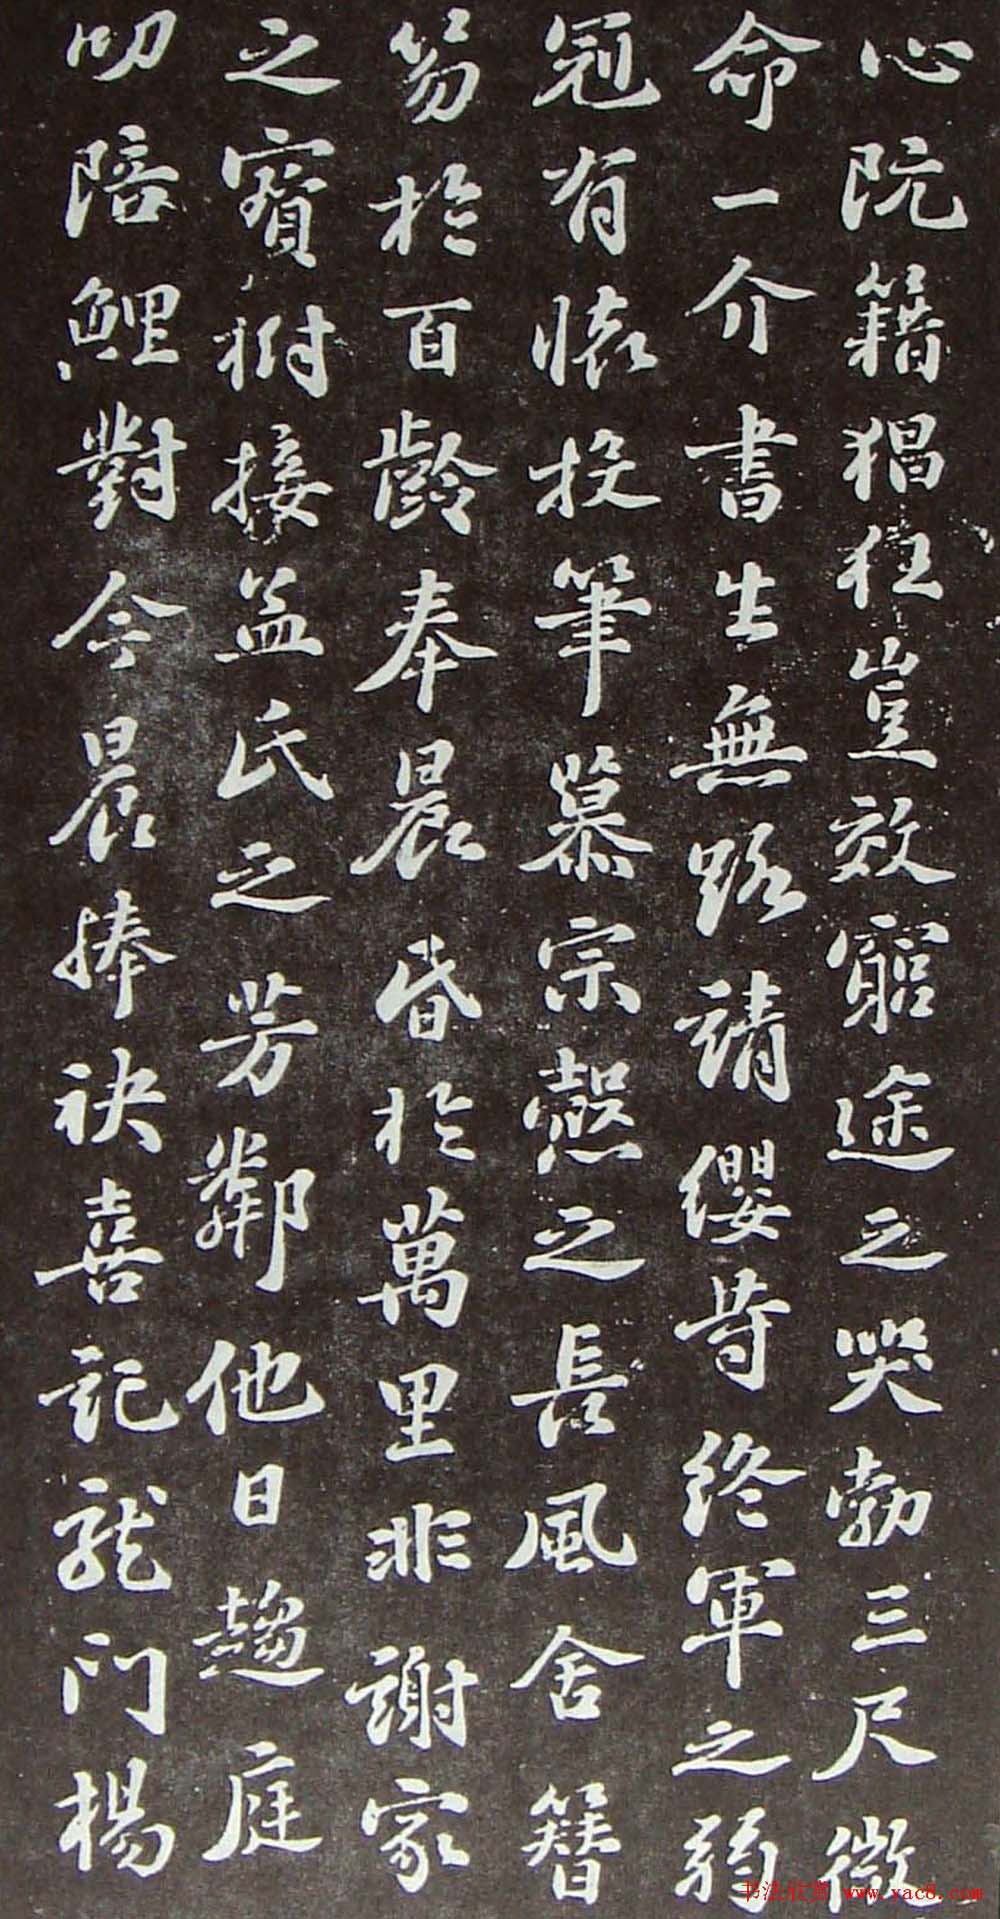 心阮籍猖狂豈效窮途之哭勃三尺微
命一介書生無路請纓等終軍之弱
冠有懷投筆慕宗愨之長風舍簪
笏於百齡奉晨昏於萬里非謝家
之寳樹接孟氏之芳鄰他日趨庭
叨陪鯉對今晨捧袂喜託龍門楊
书法欣赏 www.xac8.com